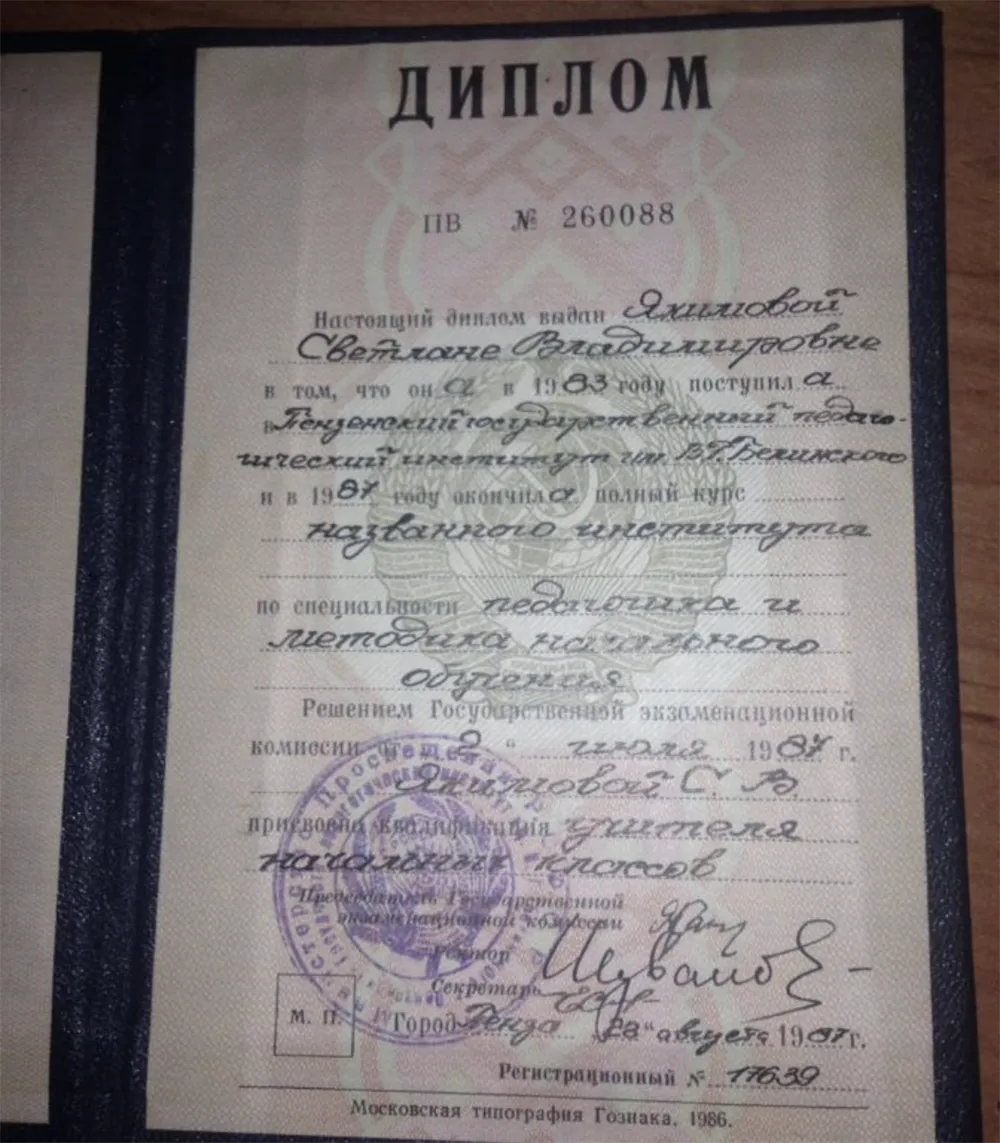 ДИПЛОМ
ПВ № 260088
Настоящий диплом выдан Якимовой
Светлане Владимировне
в том, что он а в 1983 году поступил а
в Пензенский государственный педаго-
гический институт им В.Г.Белинского
и в 1987 году окончил а полный курс
названного института
по специальности педагогика и
методика начального
обучения
Решением Государственной экзаменационной
комиссии от 2 " июля 1987 г.
Якимовой С. В.
присвоена квалификация учителя
начальных классов
Председатель Государственной
экзаменационной комиссии
Ректор
Секретарь
М. П. Город Пенза августа 1987 г.
Регистрационный № 17639
Московская типография Гознака. 1986.